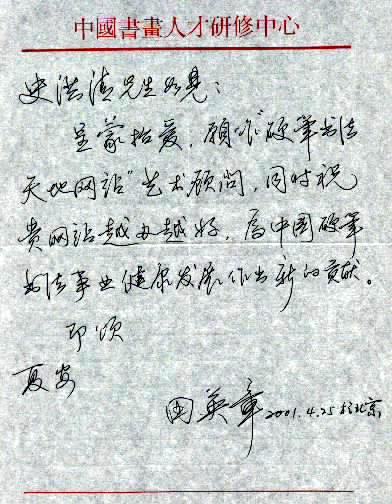 中國書畫人才研修中心
史洪滇先生如見：
呈蒙抬爱，愿作“硬笔书法
天地网站”艺术顾问，同时祝
贵网站越办越好，为中国硬笔
书法事业健康发展作出新的贡献。
即颂
夏安
田英章 2001.4.25於北京